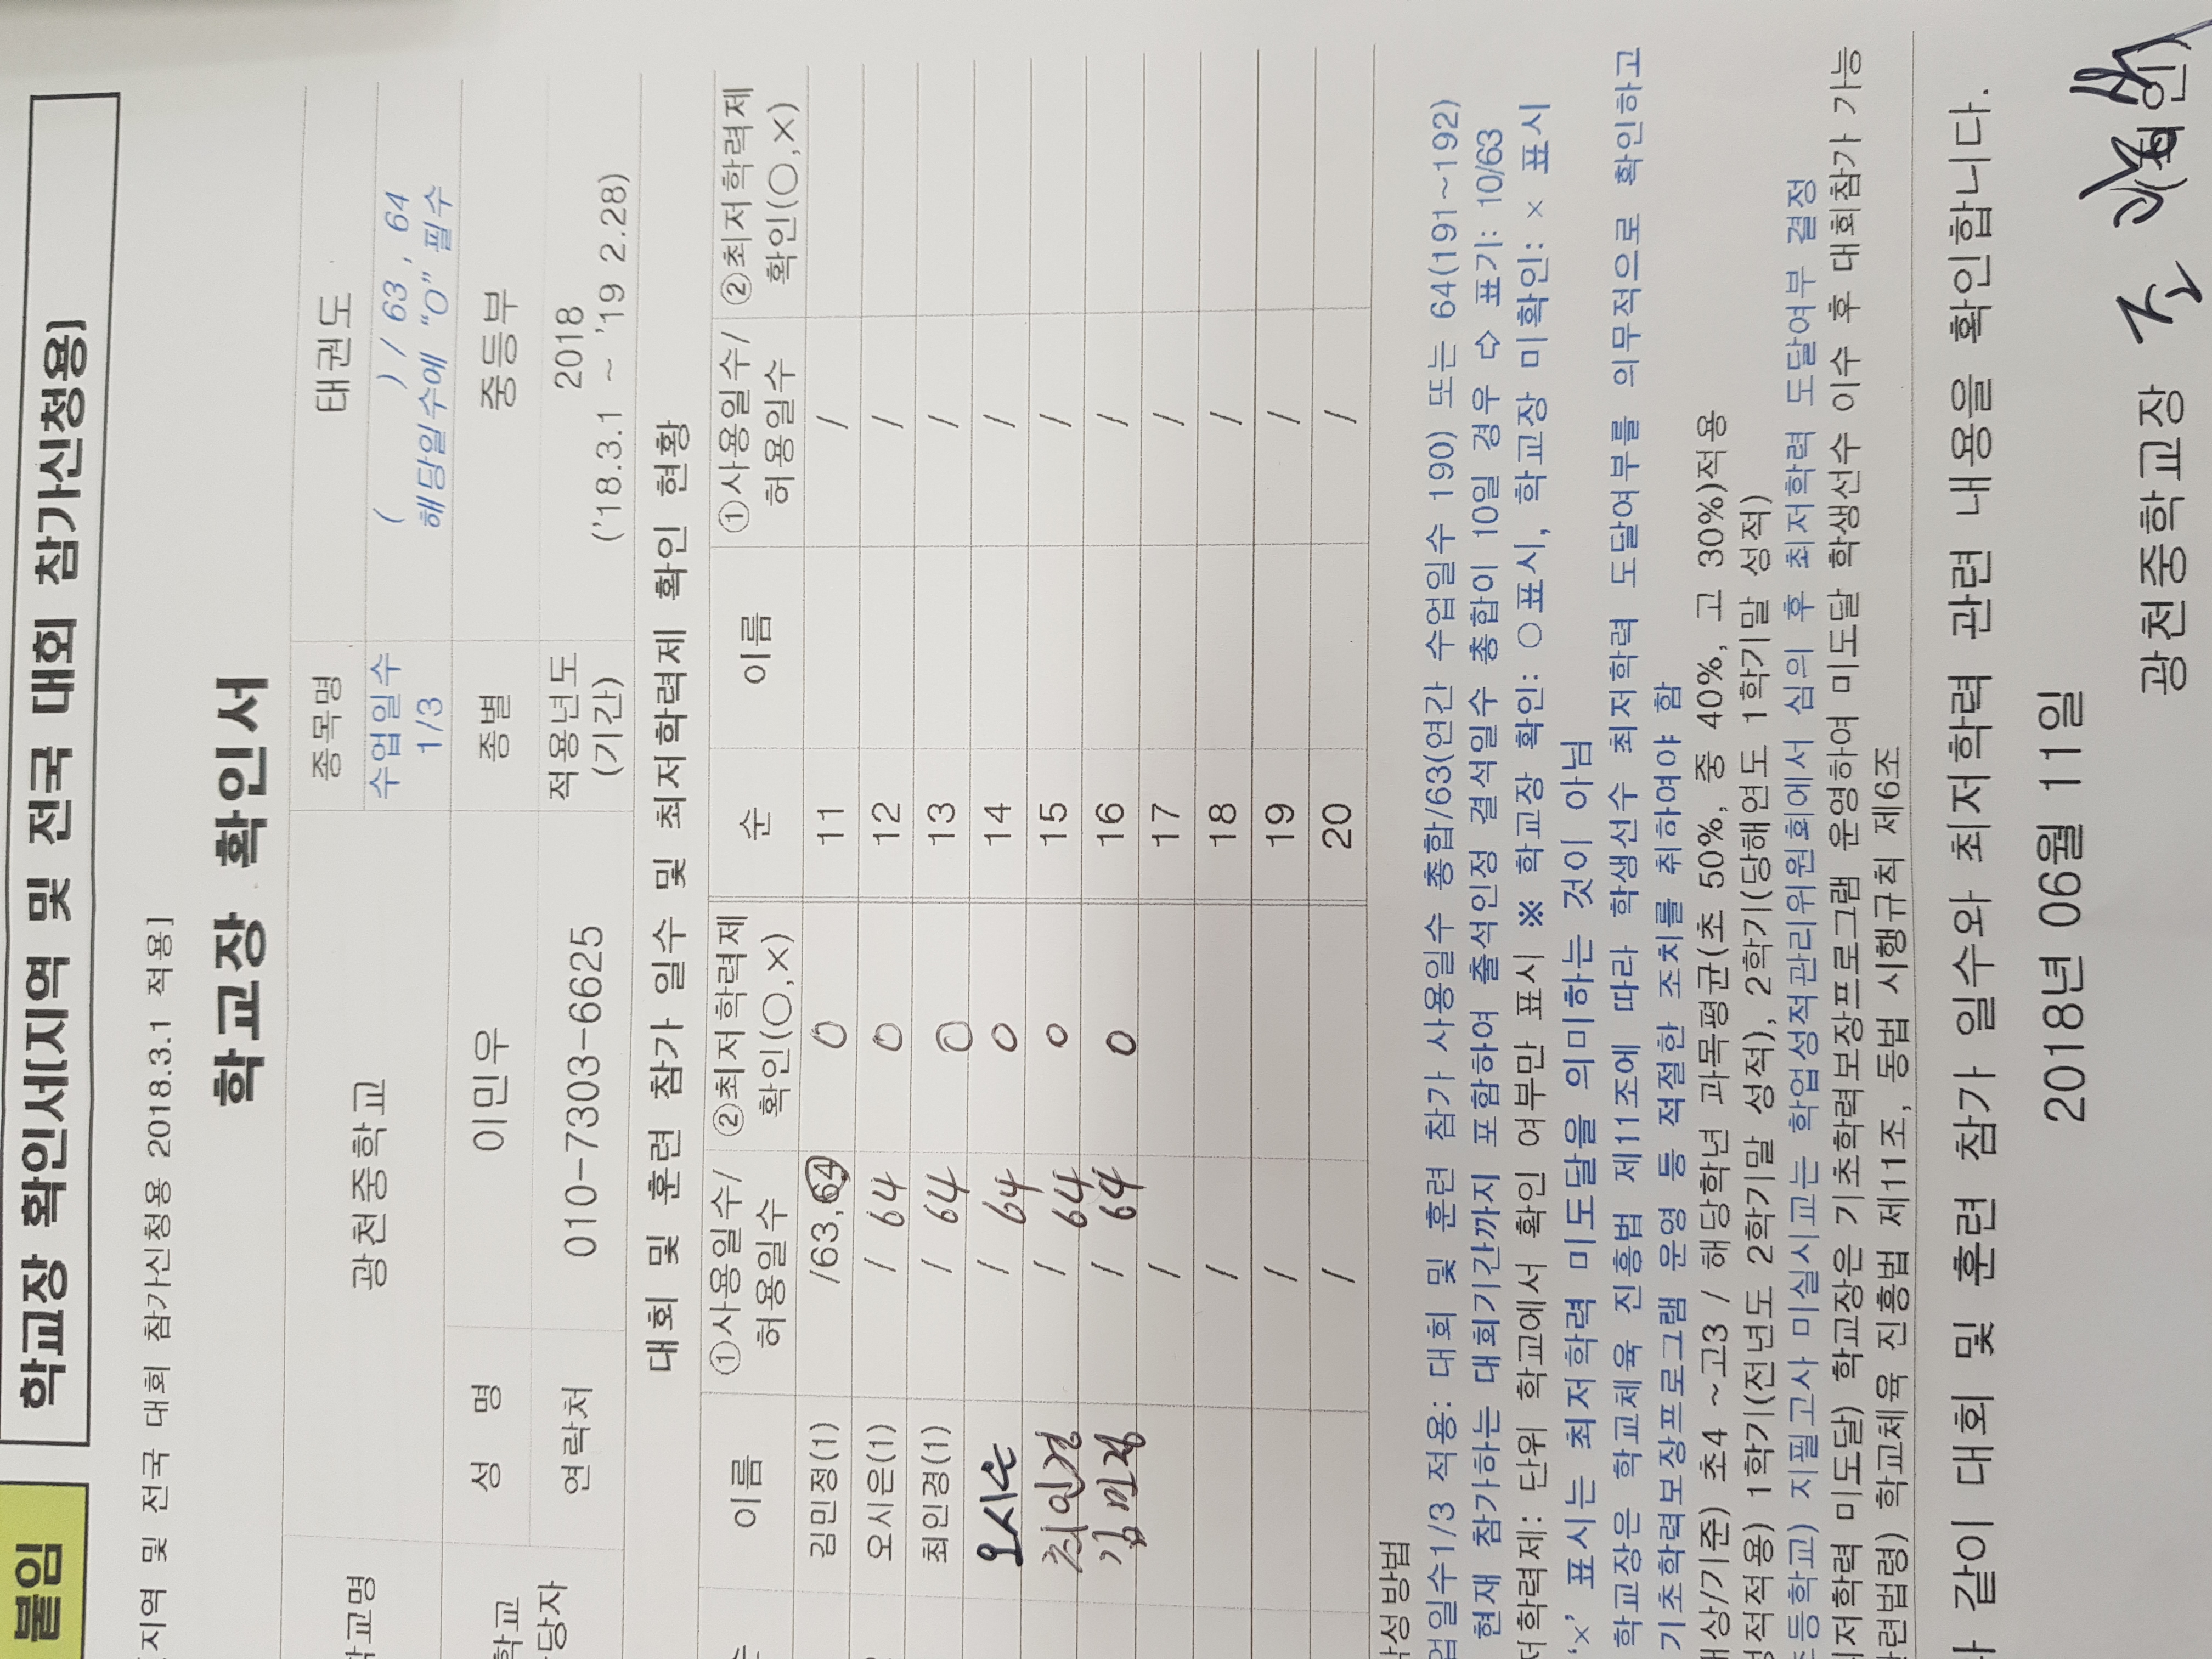 붙임
학교장 확인서[지역 및 전국 대회 참가신청용]
지역 및 전국 대회 참가신청용 2018.3.1 적용]
학교장 확인서
학교명 광천중학교 종목명 태권도
수업일수 1/3 ( ) / 63 , 64
해당일수에 "O" 필수
학교 당당자 성 명 이민우 종별 중등부
연락처 010-7303-6625 적용년도 (기간) 2018
('18.3.1 ~ '19 2.28)
대회 및 훈련 참가 일수 및 최저학력제 확인 현황
이름 ①사용일수/허용일수 ②최저학력제 확인(○,×) 순 이름 ①사용일수/허용일수 ②최저학력제 확인(○,×)
김민정(1) /63,64 O 11 /
오시은(1) / 64 O 12 /
최인경(1) / 64 O 13 /
오시은 / 64 O 14 /
최인경 / 64 O 15 /
김민정 / 64 O 16 /
/ 17 /
/ 18 /
/ 19 /
/ 20 /
작성방법
업일수1/3 적용: 대회 및 훈련 참가 사용일수 총합/63(연간 수업일수 190) 또는 64(191~192)
현재 참가하는 대회기간까지 포함하여 출석인정 결석일수 총합이 10일 경우 ⇨ 표기: 10/63
저학력제: 단위 학교에서 확인 여부만 표시 ※ 학교장 확인: ○ 표시, 학교장 미확인: × 표시
'×' 표시는 최저학력 미도달을 의미하는 것이 아님
학교장은 학교체육 진흥법 제11조에 따라 학생선수 최저학력 도달여부를 의무적으로 확인하고
기초학력보장프로그램 운영 등 적절한 조치를 취하여야 함
대상/기준) 초4 ~고3 / 해당학년 과목평균(초 50%, 중 40%, 고 30%)적용
성적적용) 1학기(전년도 2학기말 성적), 2학기(당해연도 1학기말 성적)
초등학교) 지필고사 미실시교는 학업성적관리위원회에서 심의 후 최저학력 도달여부 결정
저학력 미도달) 학교장은 기초학력보장프로그램 운영하여 미도달 학생선수 이수 후 대회참가 가능
관련법령) 학교체육 진흥법 제11조, 동법 시행규칙 제6조
같이 대회 및 훈련 참가 일수와 최저학력 관련 내용을 확인합니다.
2018년 06월 11일
광천중학교장